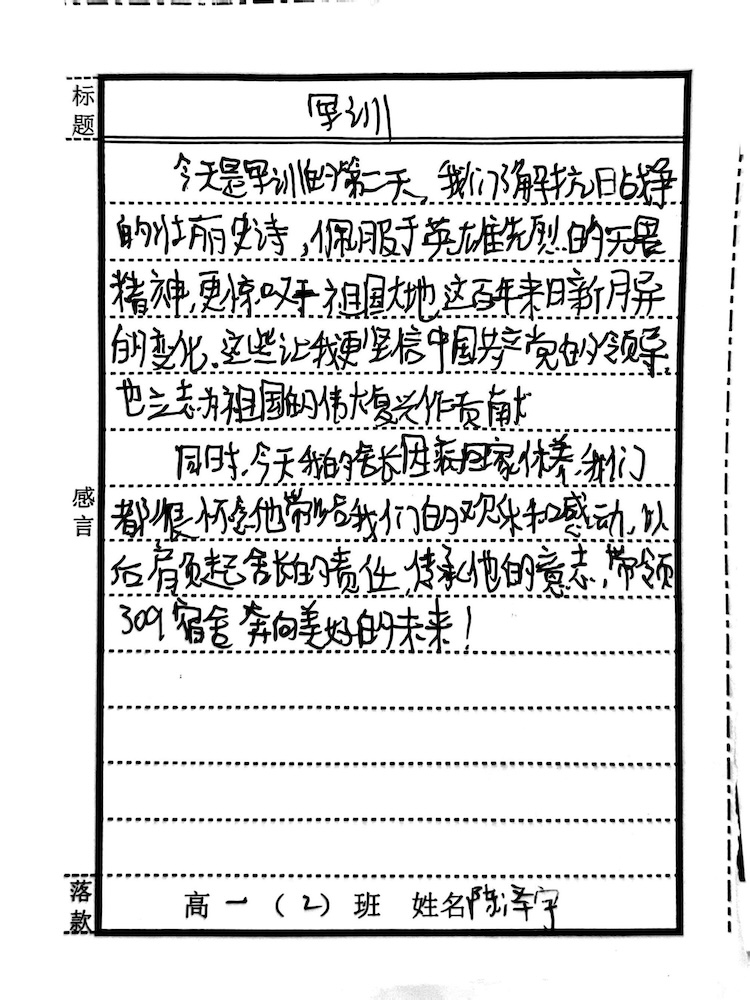 标题
军训
今天是军训的第二天，我们了解抗日战争
的壮丽史诗，佩服于英雄先烈的无畏
精神，更惊叹于祖国大地这百年来日新月异
的变化。这些让我更坚信中国共产党的领导，
也立志为祖国的伟大复兴作贡献
同时，今天我的舍长因病回家休养，我们
都很怀念他带给我们的欢乐和感动，以
后肩负起舍长的责任，传承他的意志，带领
309宿舍奔向美好的未来！
感言
落款
高一（2）班 姓名陈泽宇